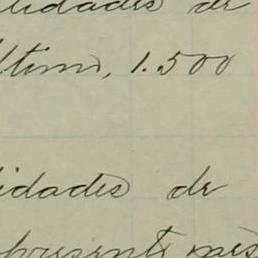 idades de
ltimo, 1.500
idades de
presente mês